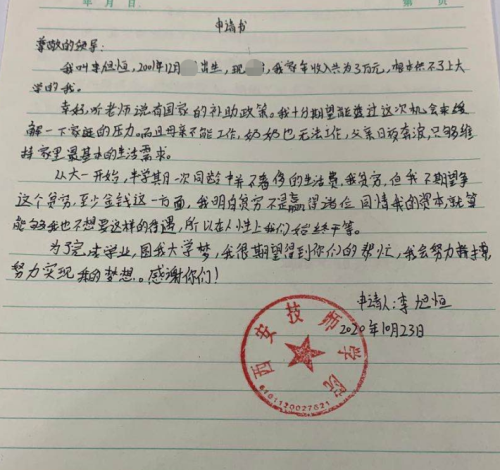 年 月 日
第 页
申请书
尊敬的领导:
我叫李旭恒,2001年12月 出生,现 ,我家年收入共为3万元,根本供不了上大
学的我。
幸好,听老师说有国家的补助政策。我十分期望能透过这次机会来缓
解一下家庭的压力。而且母亲不能工作,奶奶也无法工作,父亲日夜奔波,只够维
持家里最基本的生活需求。
从大一开始,半学期一次同龄中并不奢侈的生活费,我贫穷,但我不期望争
这个贫穷,至少金钱这一方面,我明白贫穷不是赢得诸位同情我的资本,就算
能够我也不想要这样的待遇,所以在人性上我们始终平等。
为了完成学业,圆我大学梦,我很期望得到你们的帮忙,我会努力
努力实现我的梦想。感谢你们!
申请人:李旭恒
2020年10月23日
西安技师学院
6101120027821